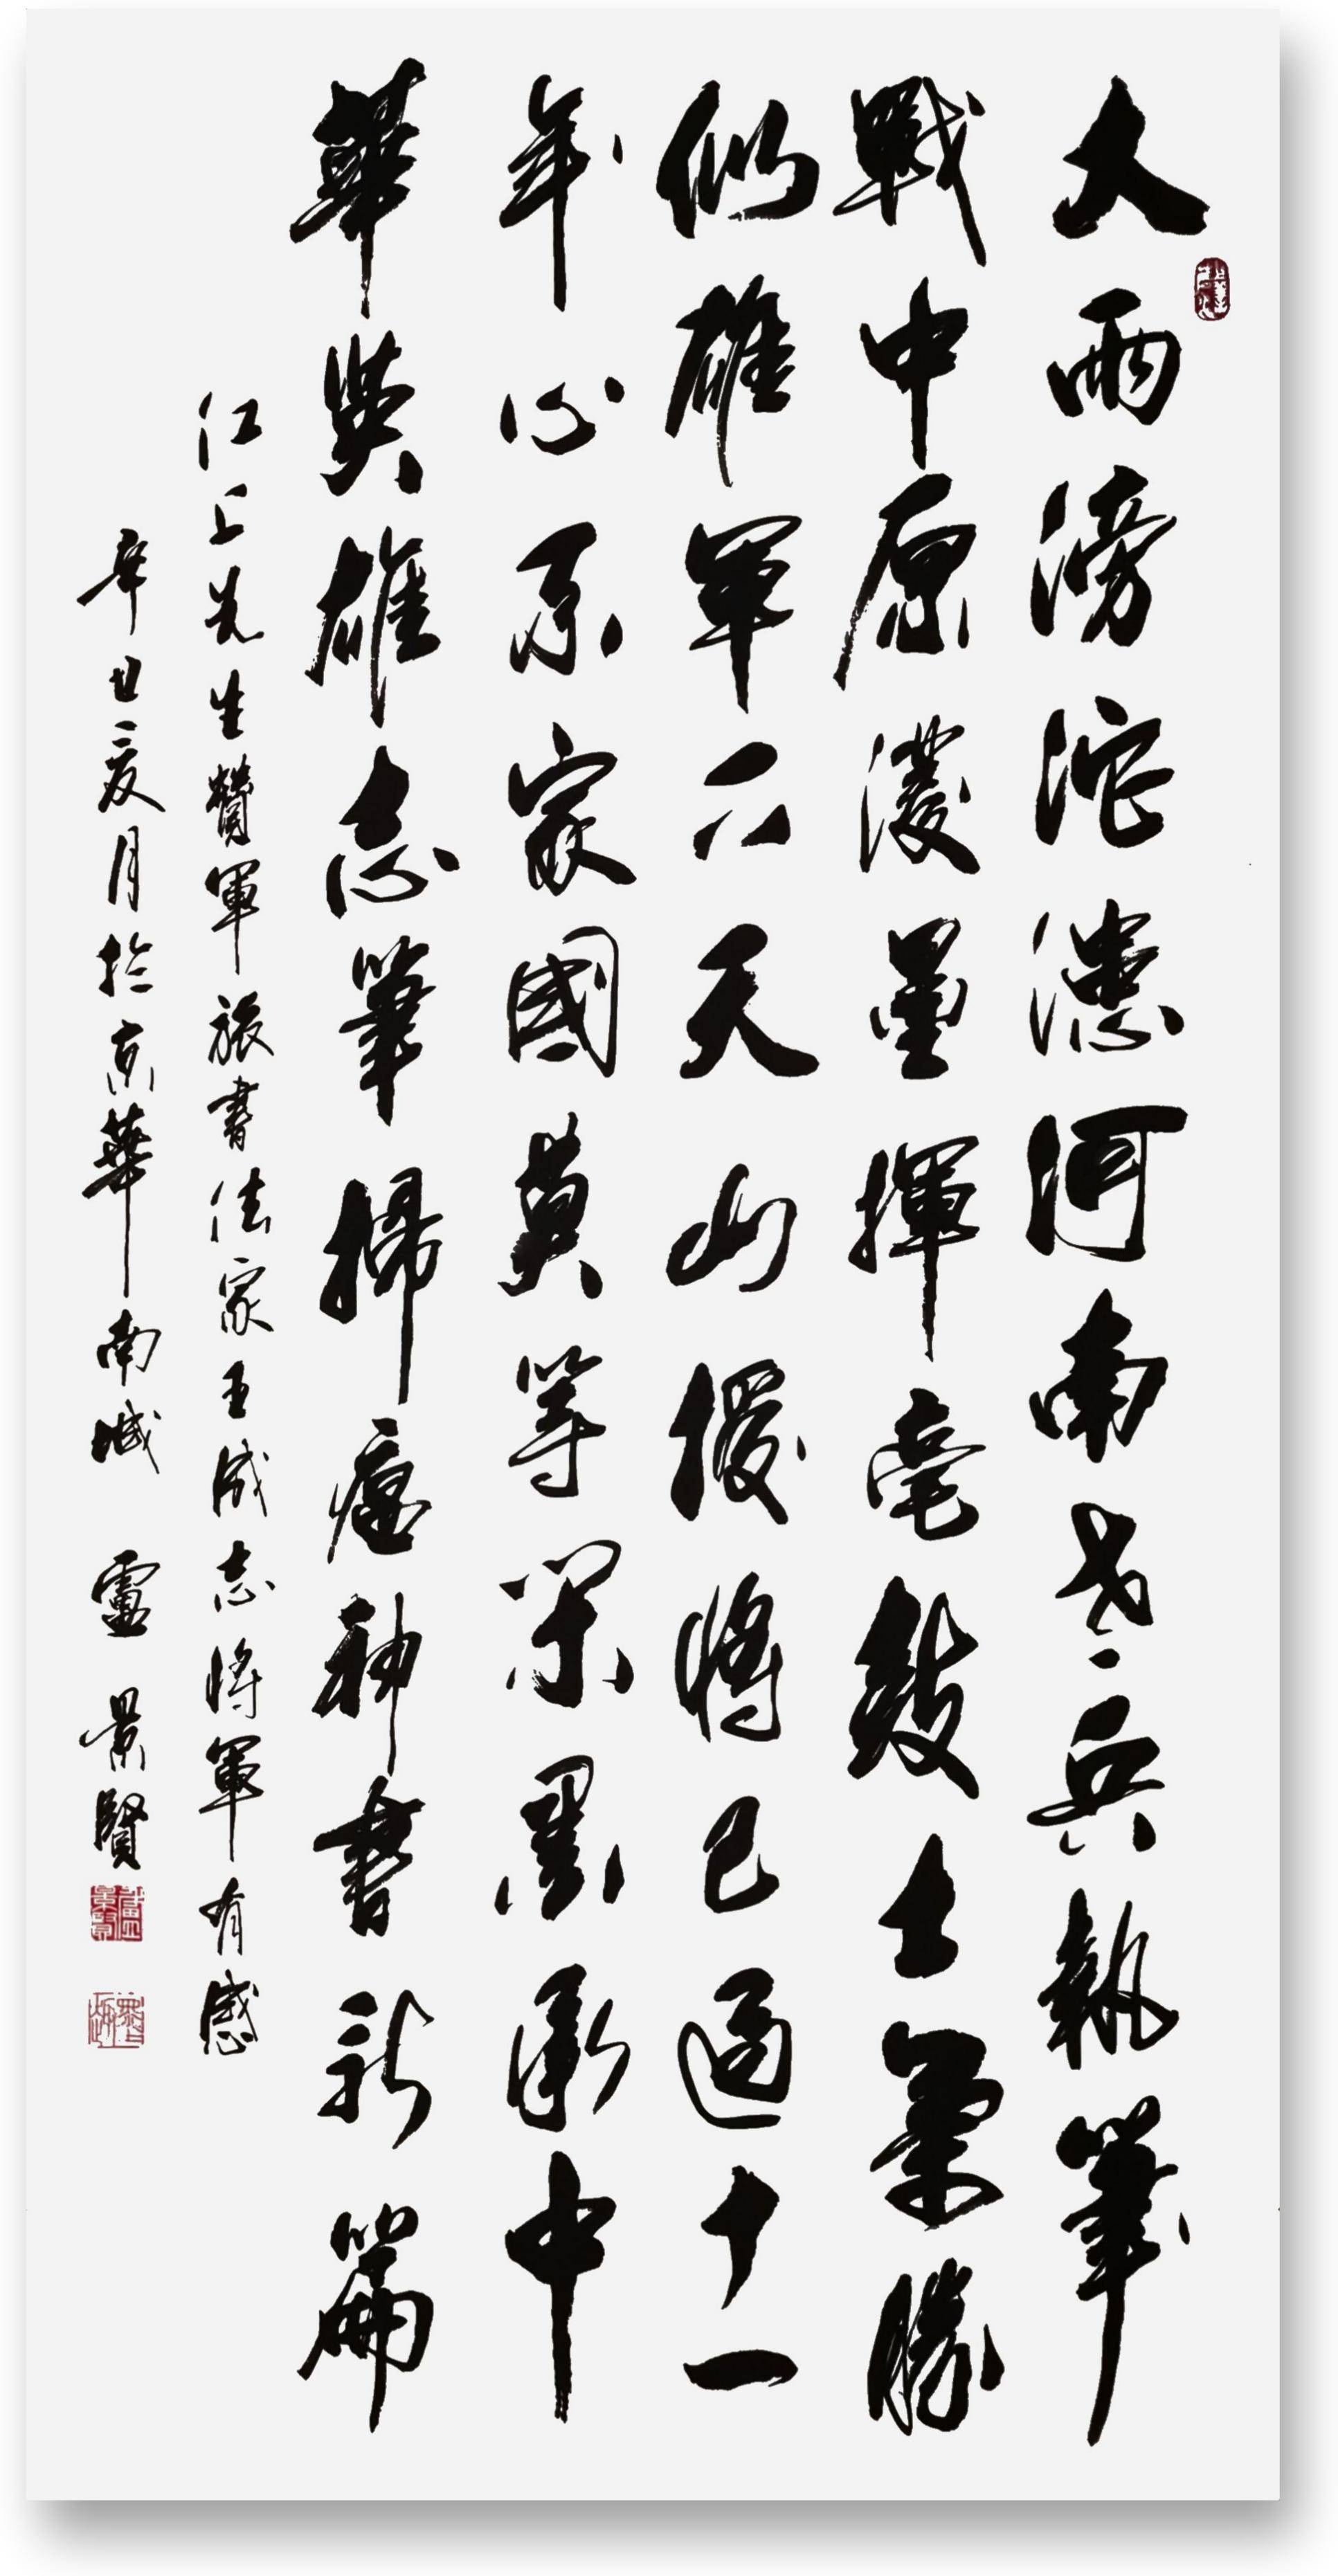 大雨滂沱懣河南老兵執筆
戰中原濃墨揮毫鼓士氣勝
似雄軍下天山授將已過十一
年心系家國莫等閑墨承中
華英雄志筆掃瘟神書新篇
江上先生贊軍旅書法家王成志將軍有感
辛丑夏月於京華南城 盧景賢